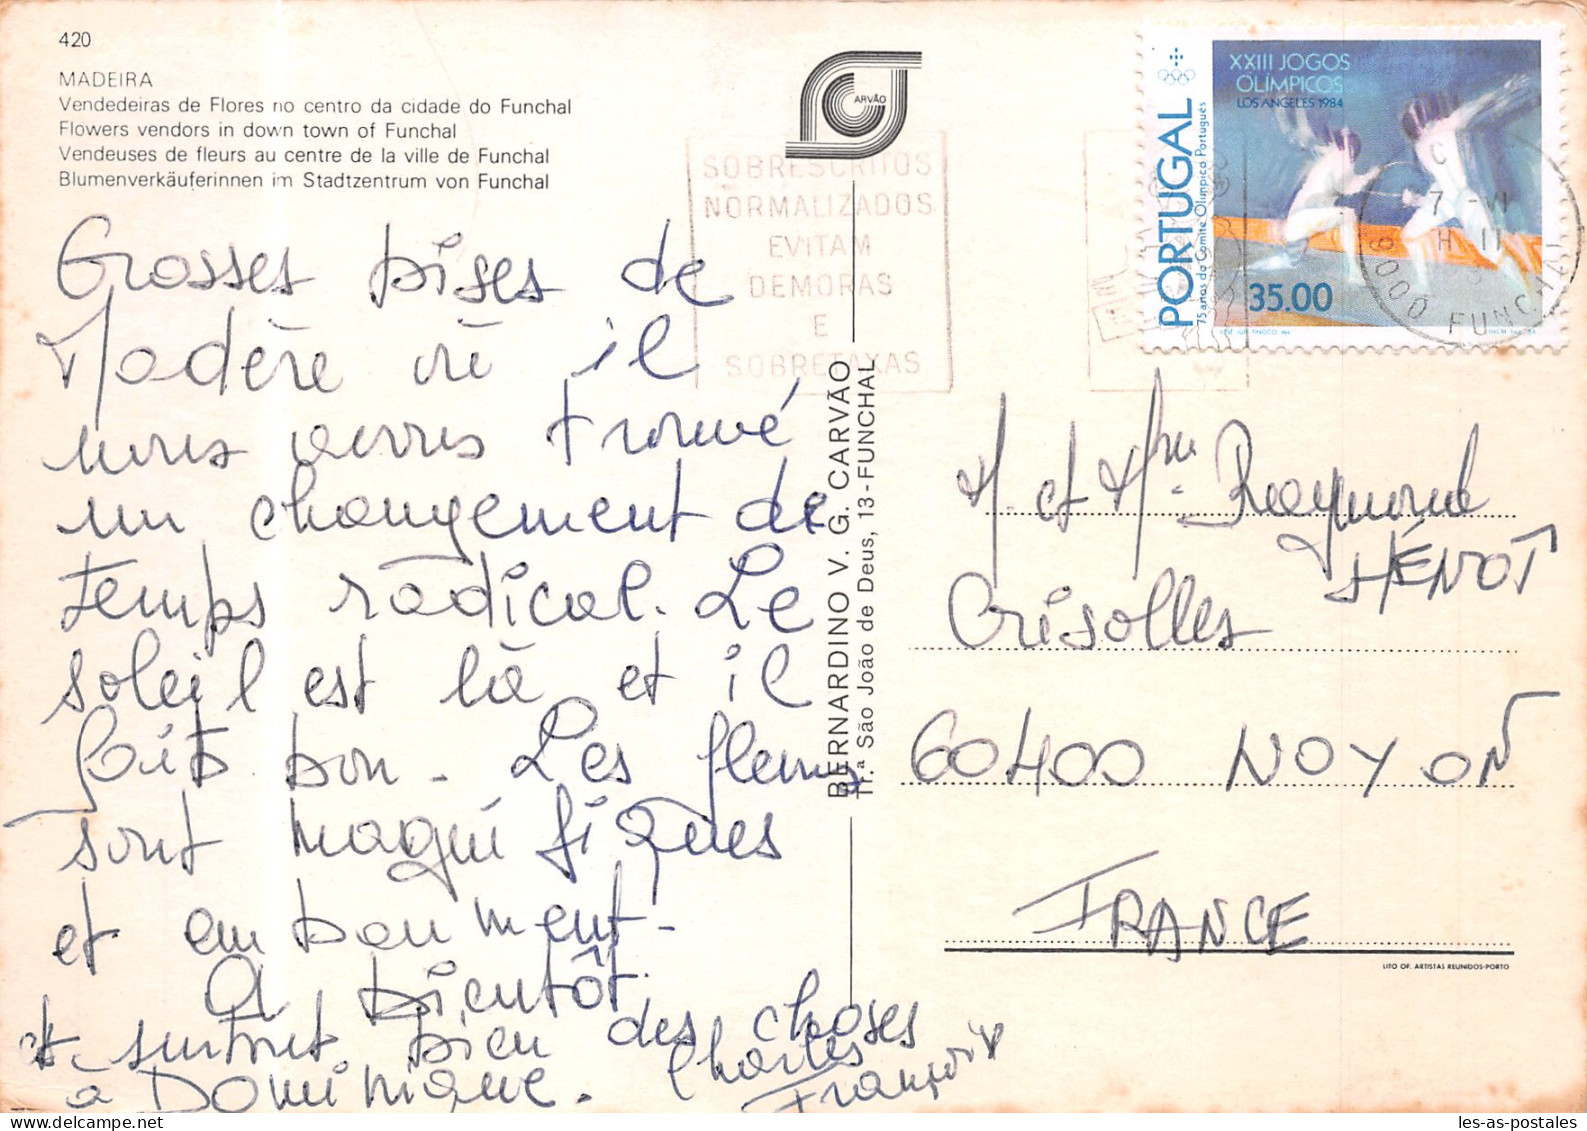 420
MADEIRA
Vendedeiras de Flores no centro da cidade do Funchal
Flowers vendors in down town of Funchal
Vendeuses de fleurs au centre de la ville de Funchal
Blumenverkäuferinnen im Stadtzentrum von Funchal
Grosses bises de
Madère où il
nous avons trouvé
un changement de
temps radical. Le
soleil est là et il
fait bon. Les fleurs
sont magnifiques
et embaument.
A bientôt
et surtout bien des choses
à Dominique. Charles
François
ARVÃO
BERNARDINO V. G. CARVÃO
Tr.ª São João de Deus, 13 - FUNCHAL
SOBRESCRITOS
NORMALIZADOS
EVITAM
DEMORAS
E
SOBRETAXAS
XXIII JOGOS
OLÍMPICOS
LOS ANGELES 1984
PORTUGAL
75 anos do Comité Olímpico Português
35.00
7 - VI
H 11
9000 FUNCHAL
M. et Mme. Raymond
HÉNOT
Crisolles
60400 NOYON
FRANCE
LITO OF. ARTISTAS REUNIDOS-PORTO
les-as-postales